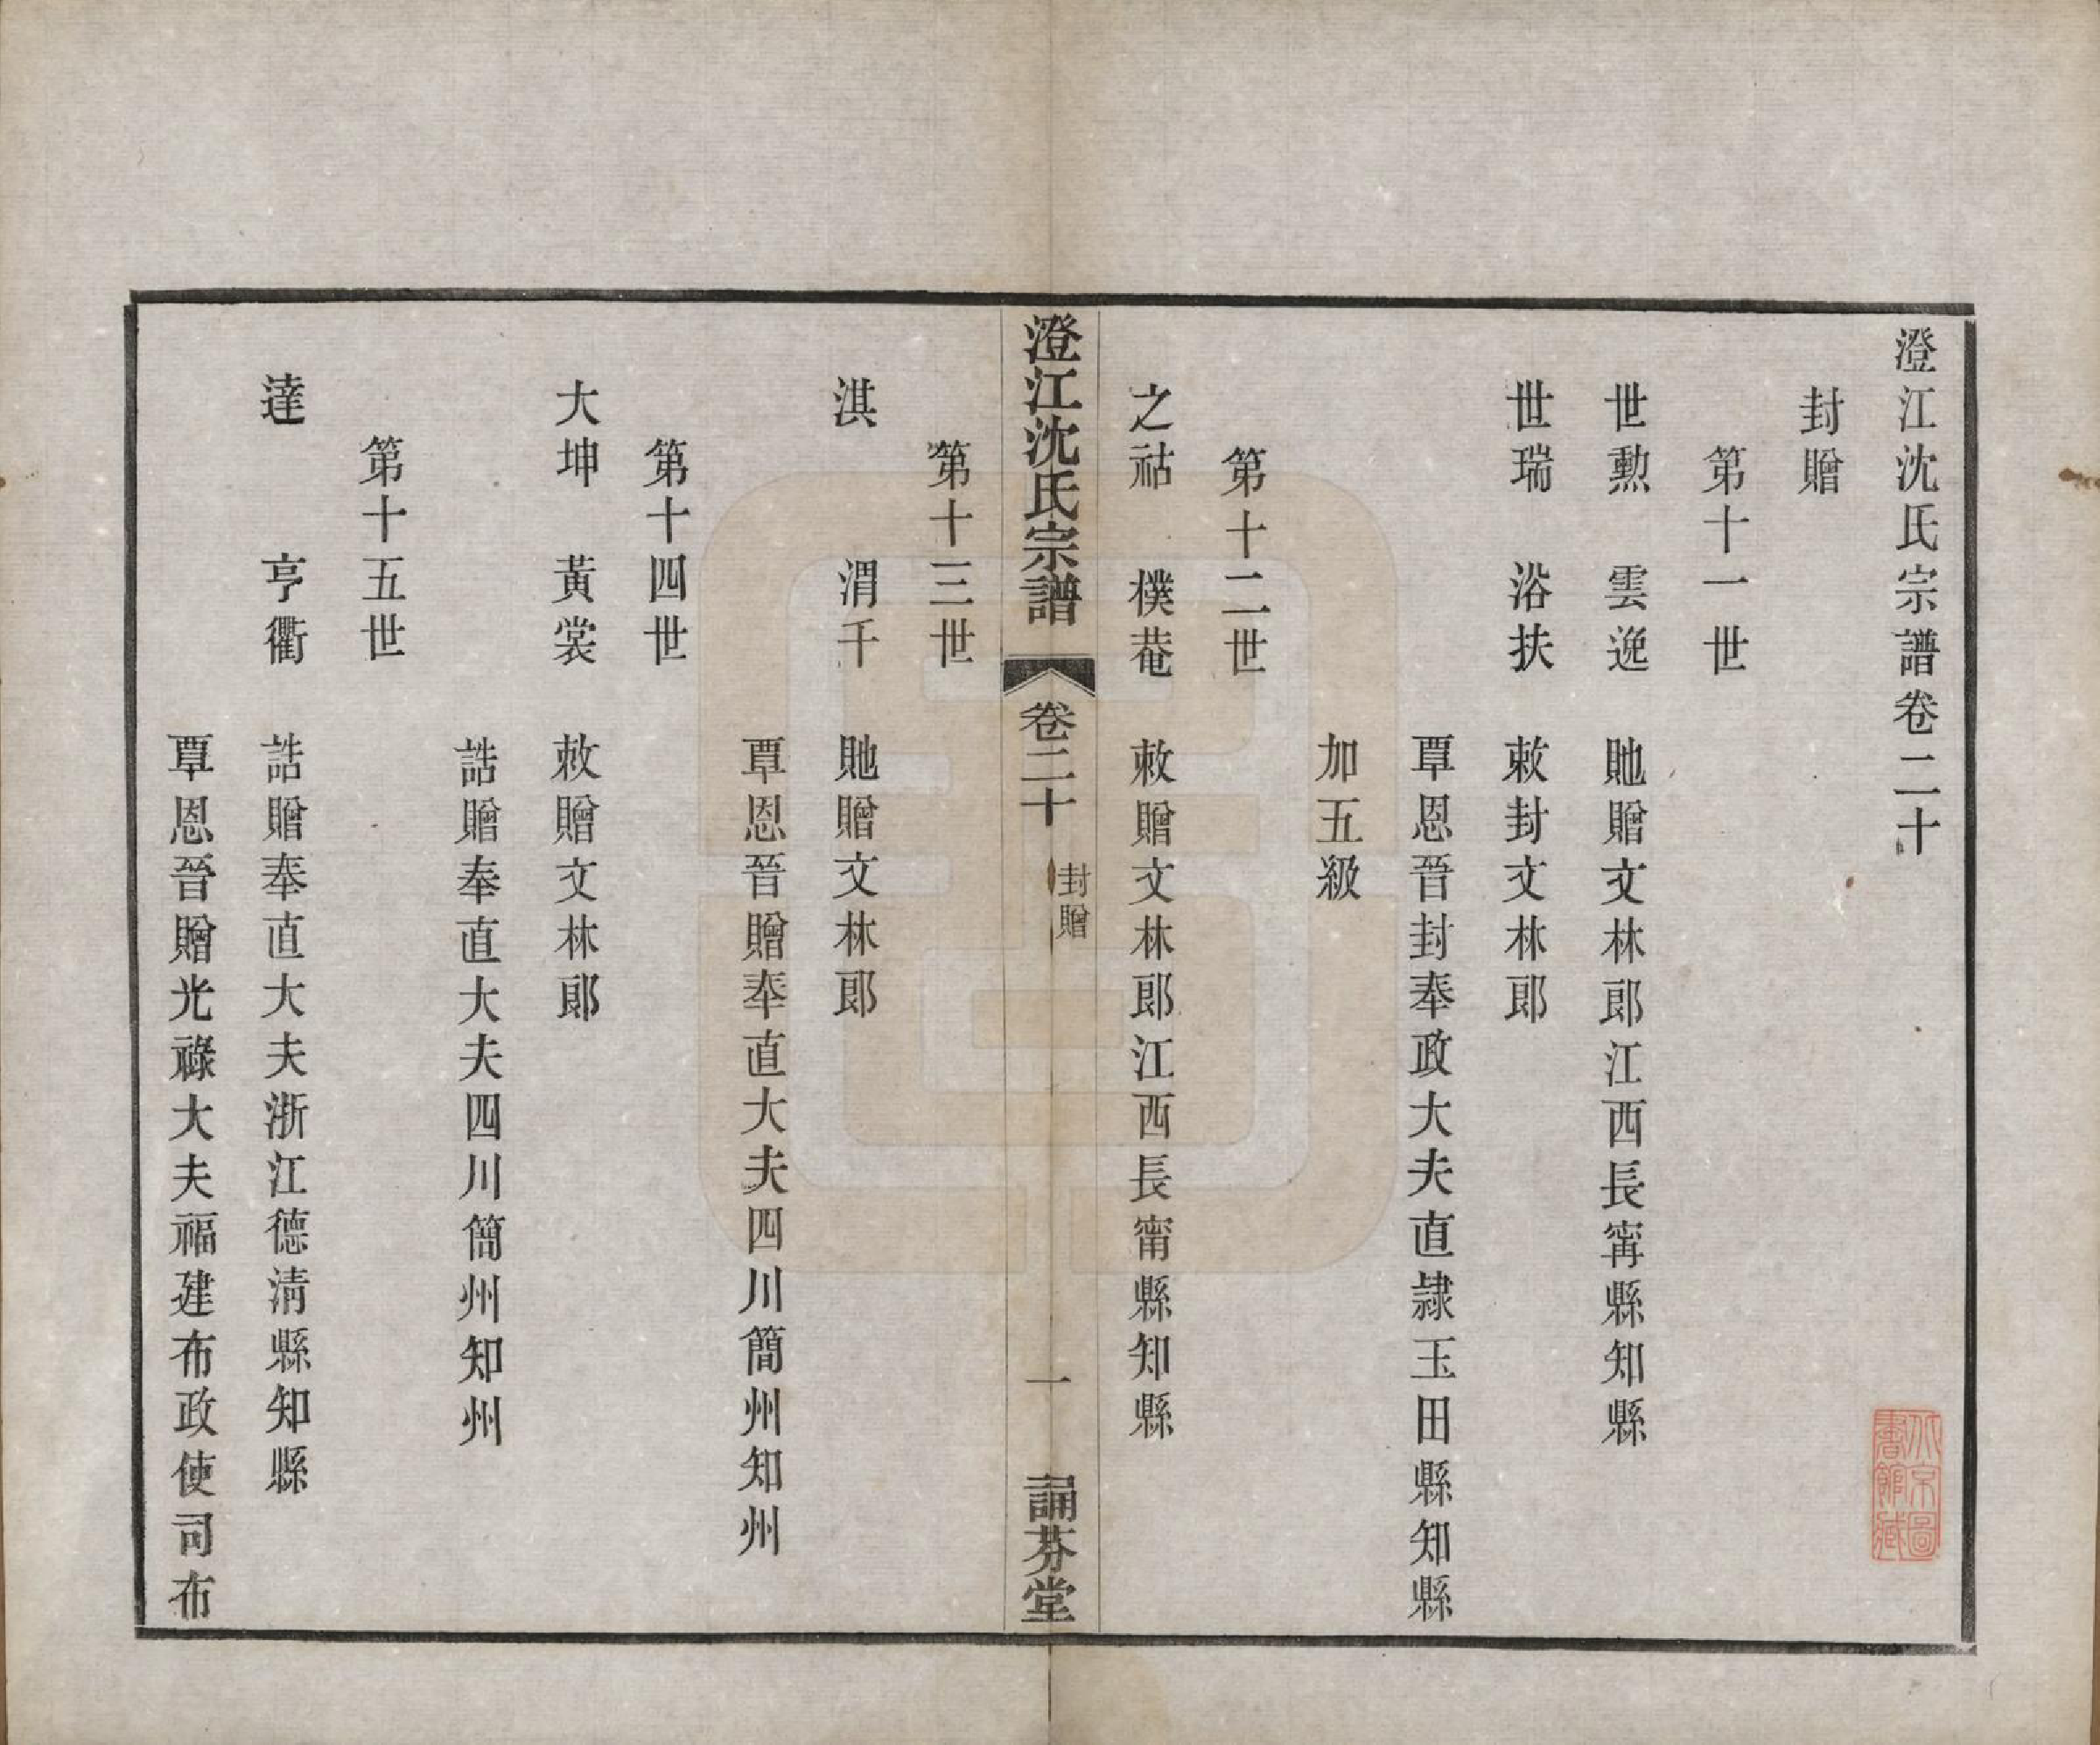 澄江沈氏宗譜卷二十
封贈
第十一世
世勲　雲逸　貤贈文林郎江西長寗縣知縣
世瑞　浴扶　敕封文林郎
覃恩晉封奉政大夫直隸玉田縣知縣
加五級
第十二世
之祜　樸菴　敕贈文林郎江西長甯縣知縣
澄江沈氏宗譜　卷二十　封贈　一　誦芬堂
第十三世
淇　渭千　貤贈文林郎
覃恩晉贈奉直大夫四川簡州知州
第十四世
大坤　黃裳　敕贈文林郎
誥贈奉直大夫四川簡州知州
第十五世
達　亨衢　誥贈奉直大夫浙江德清縣知縣
覃恩晉贈光祿大夫福建布政使司布
北京圖書館藏